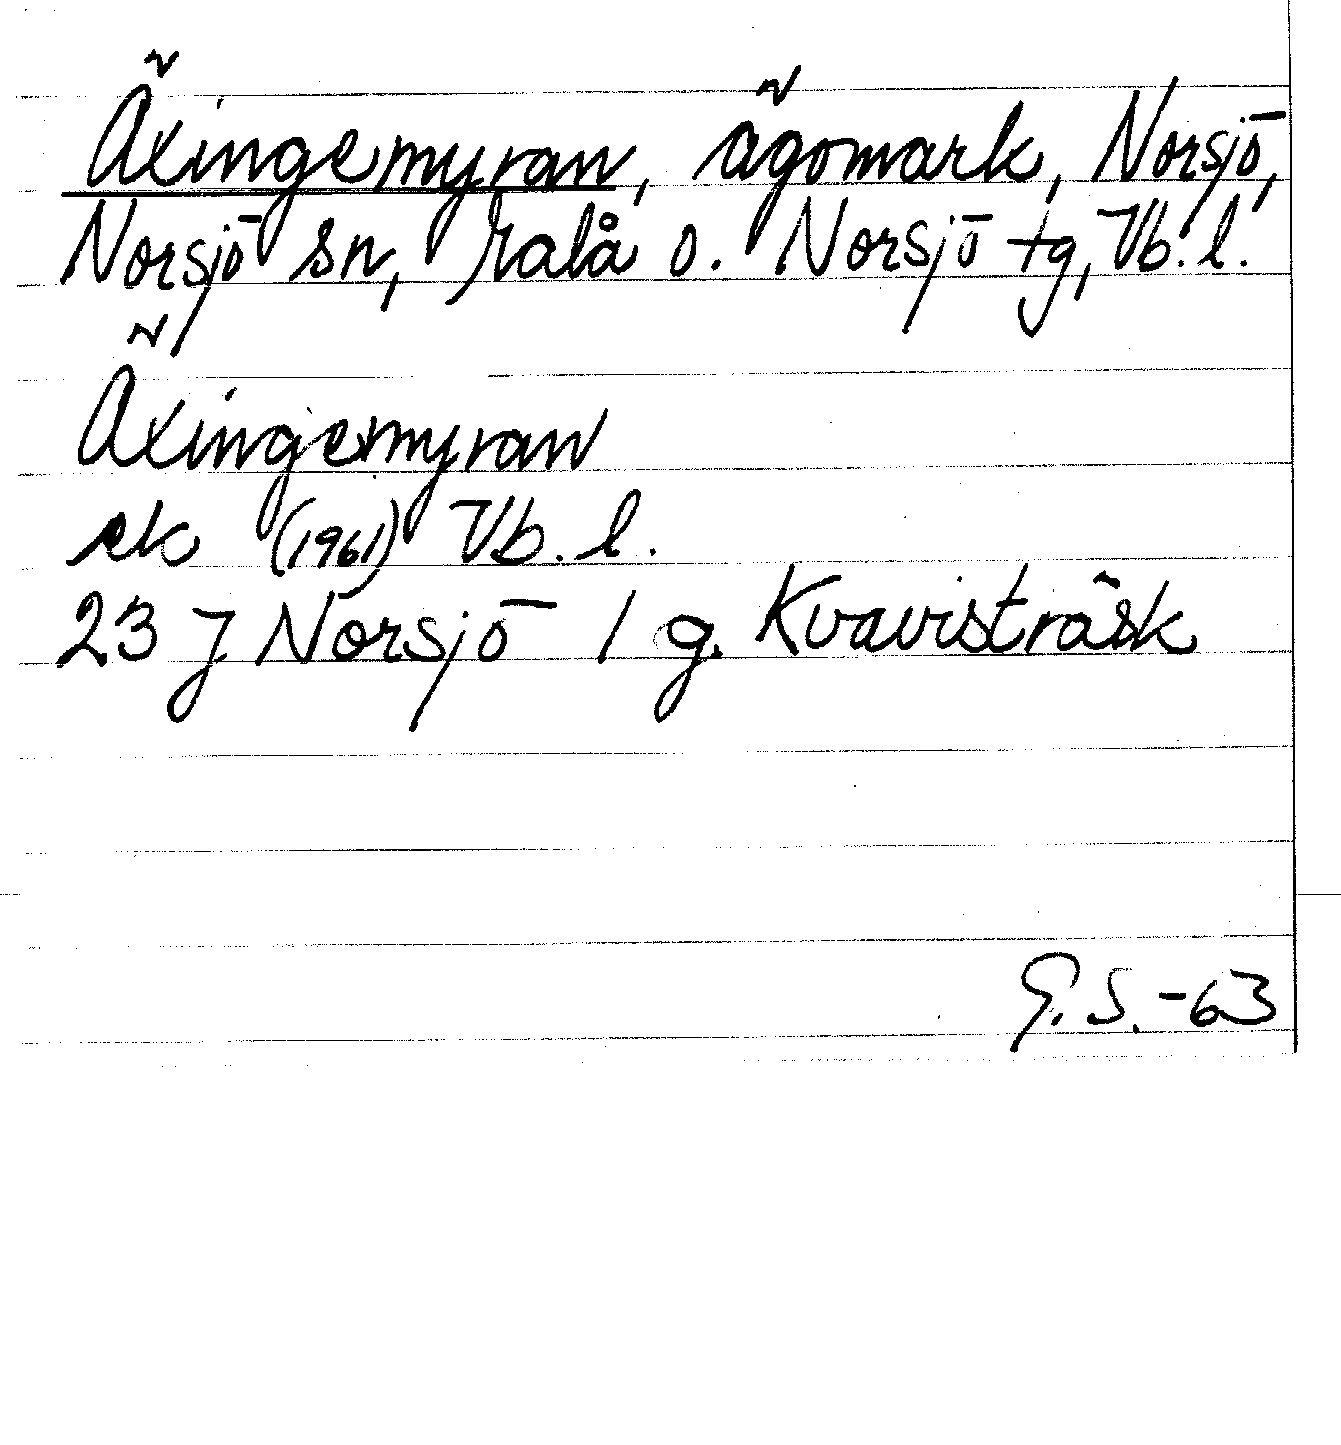 Äxingemyran, ägomark, Norsjö,
Norsjö sn, Malå o. Norsjö tg, Vb. l.
Äxingemyran
ek (1961) Vb. l.
23 J Norsjö / g. Kvavisträsk
G. S. -63